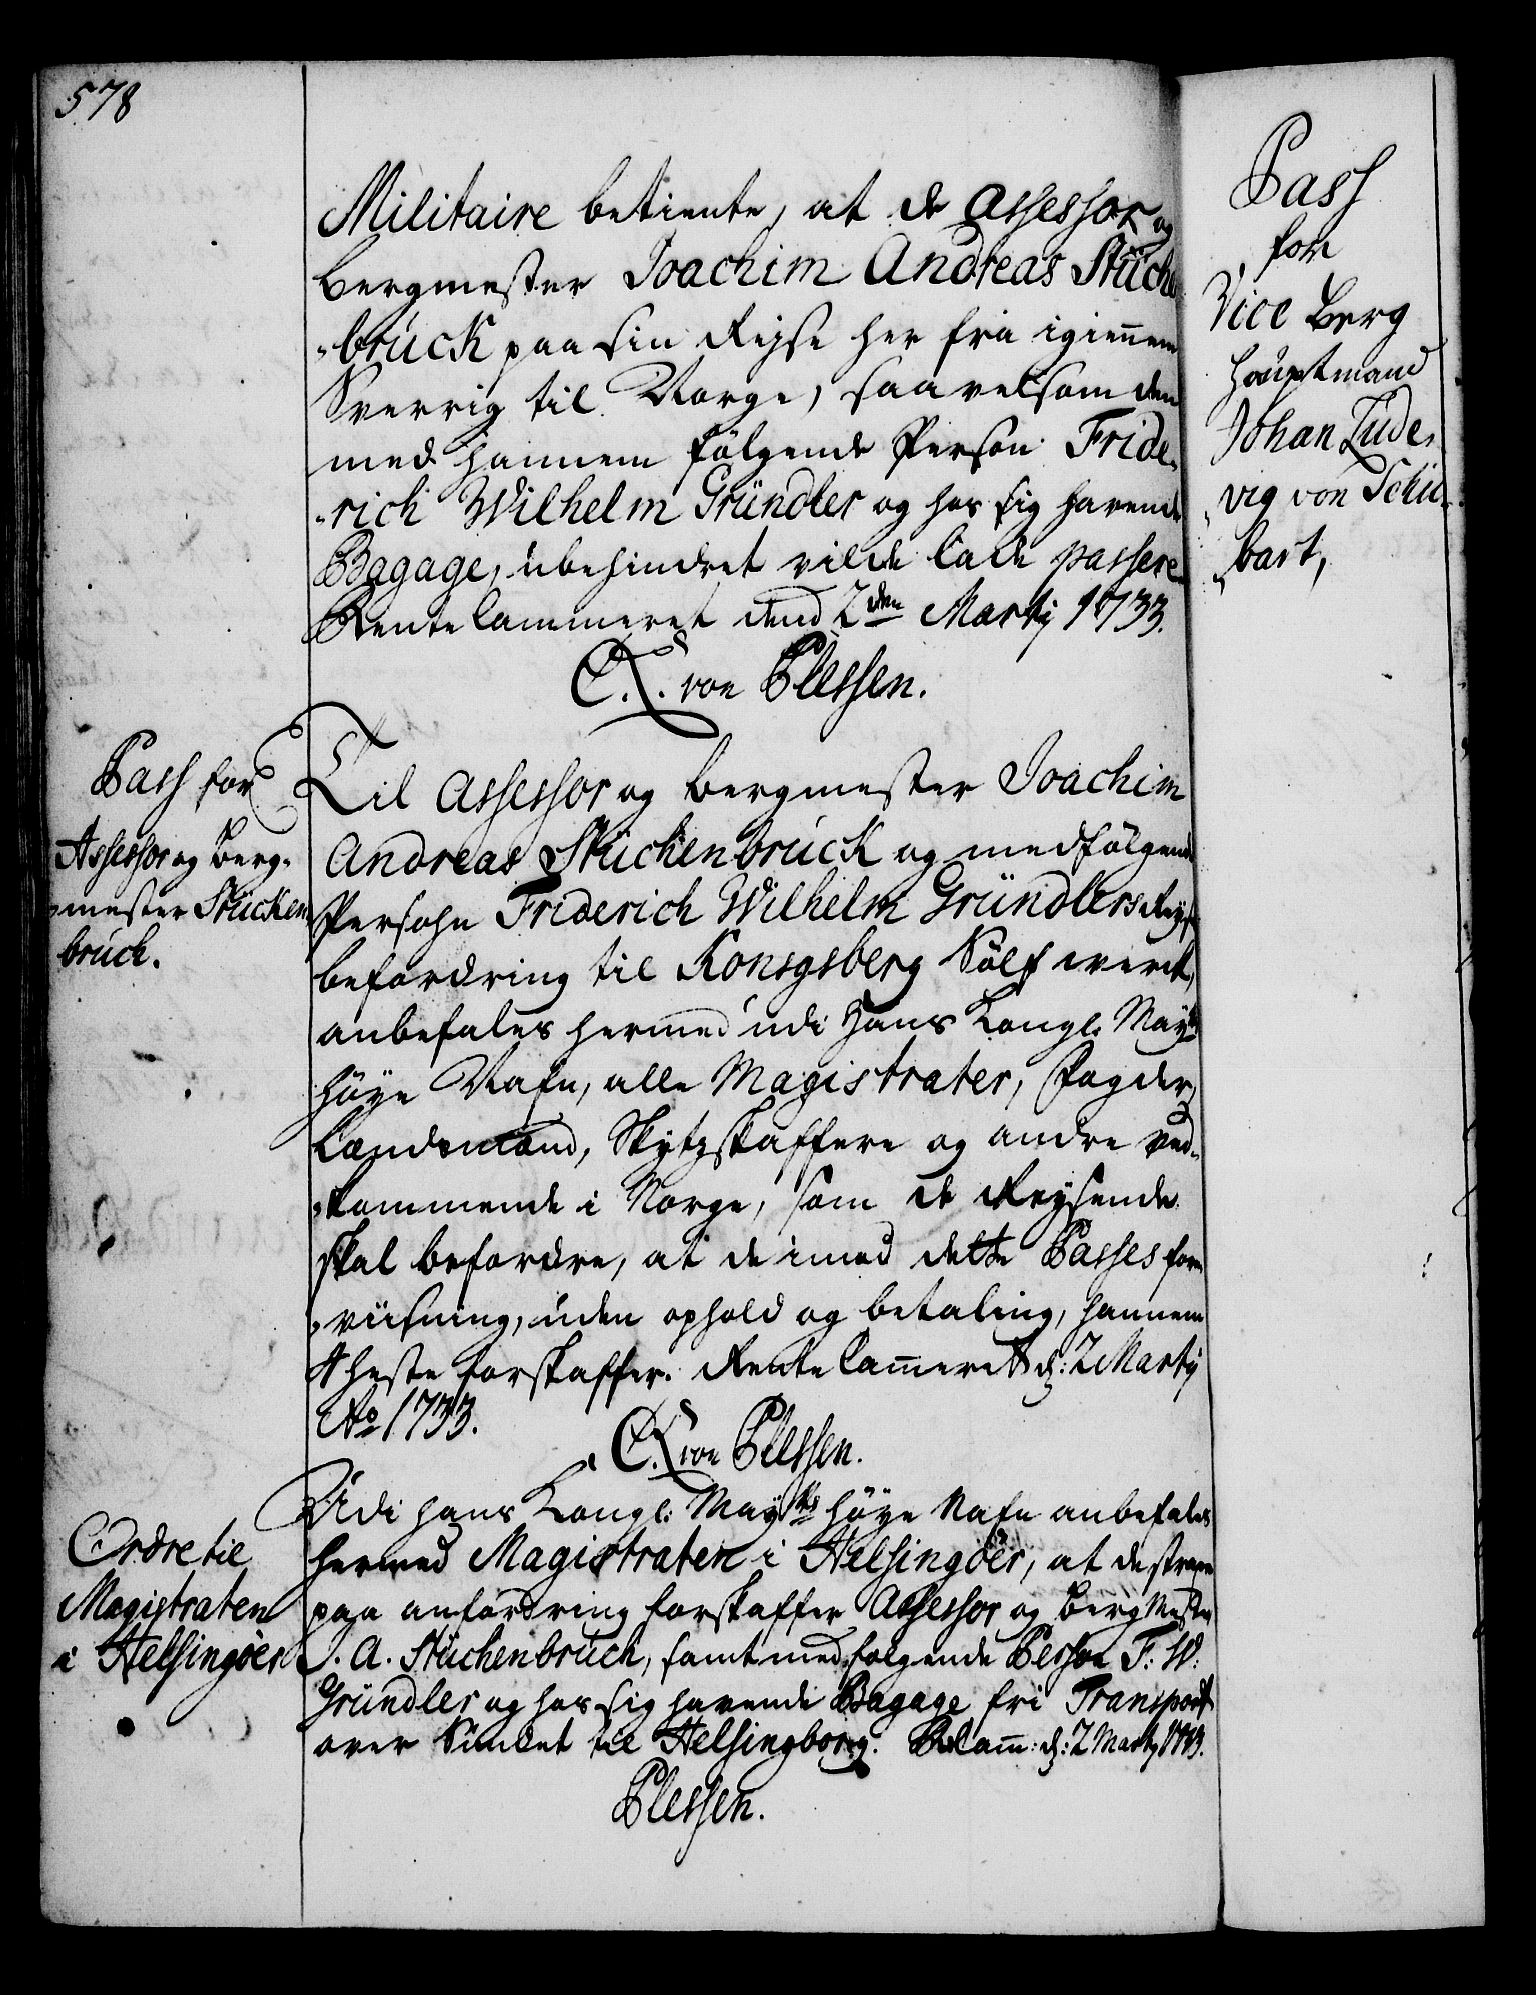 578
Militaire betiente, at de Assessor og
bergmester Joachim Andreas Stüche
-brück paa sin Rejse her fra igiennem
Sverrig til Norge, saavelsom den
med hannem følgende Person Fride-
-rich Wilhelm Gründler og hos sig havende
Bagage, ubehindret vilde lade passere
Rentekammeret dend 2den Martij 1733.
C. A. von Plessen.
Pass for
Assessor og Berg-
-mester Stücken
brück.
Til Assessor og bergmester Joachim
Andreas Stüchenbrück og medfølgende
Persohn Friderich Wilhelm Gründlers Rejse
befordring til Konsgsberg Sølf werck,
anbefales hermed udi Hans Kongl. Mayts
høye Nafn, alle Magistrater, Fogder,
Lændsmænd, Skytzskaffere og andre ved-
-kommende i Norge, som de Reysende
skal befordre, at de imod dette Passes fore
-viisning, uden ophold og betaling, hannem
4 heste forskaffer. Rente Cammeret d: 2 Martij
Ao 1733.
C. A. von Plessen.
Ordre til
Magistraten
i Helsingöer
Udi Hans Kongl: Mayts høye Nafn anbefales
hermed Magistraten i Helsingöer, at de strax
paa anfordring forskaffer Assessor og Berg Mester
J. A. Stüchenbrück, samt medfølgende Person F: W:
Gründler og hos sig havende Bagage fri Transport
over Sundet til Helsingborg. d: 2 Martij 1733.
Plessen.
Pass
for
Vice Berg
Hauptmand
Johan Lude-
-vig von Schu-
-bart,